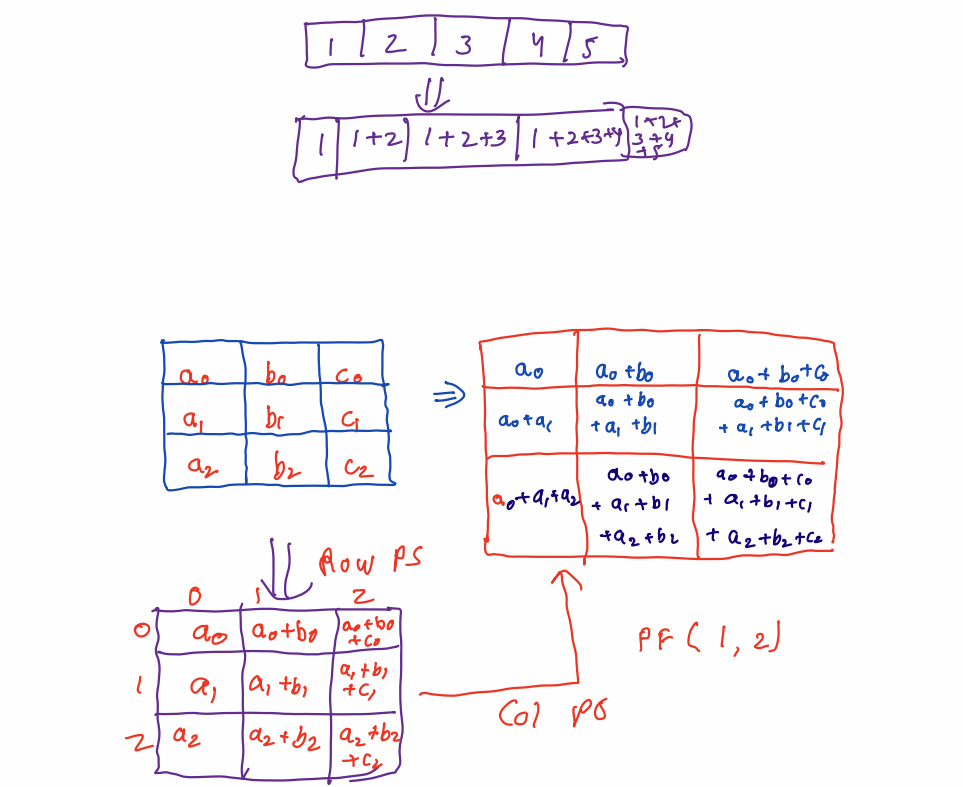 1 2 3 4 5
1 1+2 1+2+3 1+2+3+4 1+2+
3+4
+5
a₀ b₀ c₀
a₁ b₁ c₁
a₂ b₂ c₂
⇒
a₀ a₀+b₀ a₀+b₀+c₀
a₀+a₁ a₀+b₀ a₀+b₀+c₀
+a₁+b₁ +a₁+b₁+c₁
a₀+a₁+a₂ a₀+b₀ a₀+b₀+c₀
+a₁+b₁ +a₁+b₁+c₁
+a₂+b₂ +a₂+b₂+c₂
Row PS
0 1 2
0 a₀ a₀+b₀ a₀+b₀
+c₀
1 a₁ a₁+b₁ a₁+b₁
+c₁
2 a₂ a₂+b₂ a₂+b₂
+c₂
Col PS
PF(1,2)